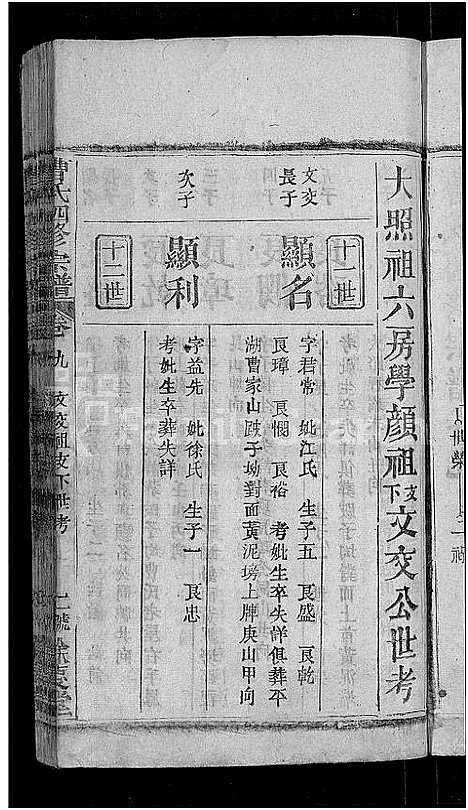 大照祖六房學顔祖支下文交公世考
文交長子
十二世
顯名
字若常 妣江氏 生子五 良盛 良乾
良璋 良惘 良裕 考妣生卒失詳俱葬平
湖曹家山跂子坳對面黃泥塝上牌庚山甲向
次子
十二世
顯利
字益先 妣徐氏 生子一 良忠
考妣生卒葬失詳
曹氏四修宗譜 卷九 文交祖支下世考